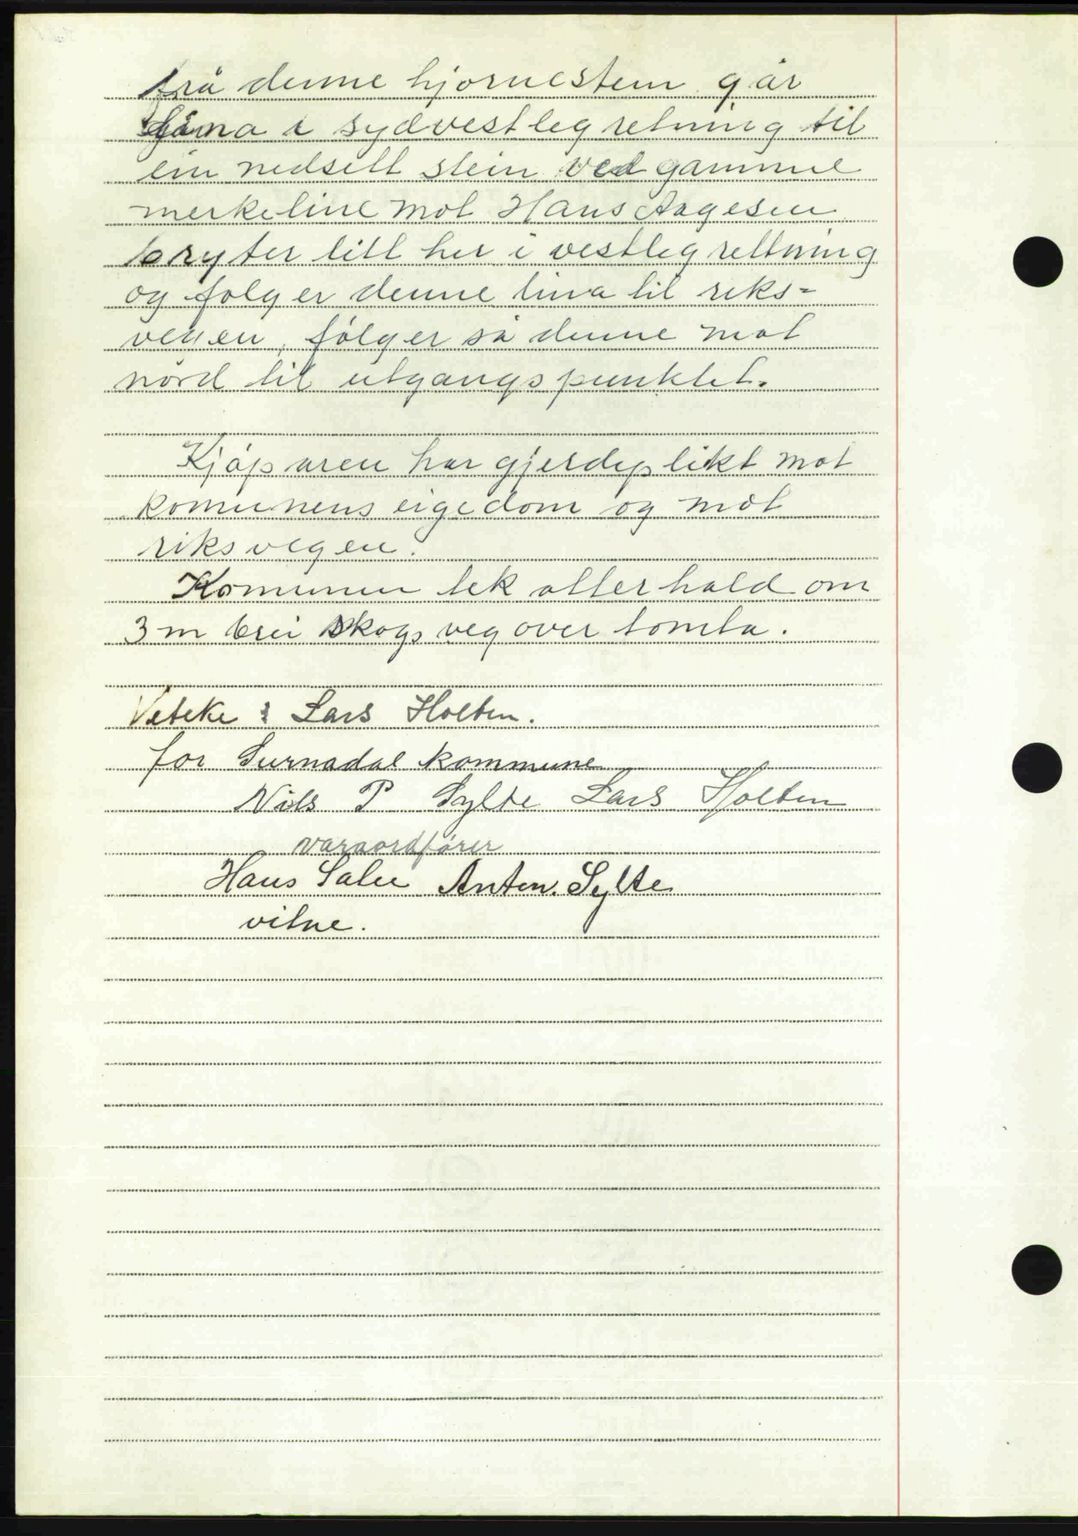 frå denne hjørnestein går
lina i sydvestleg retning til
ein nedsett stein ved gammel
merkeline mot Hans Aagesen
bryter litt her i vestleg rettning
og følger denne lina til riks=
vegen, følger så denne mot
nord til utgangspunktet.
Kjøparen har gjerdeplikt mot
komunens eigedom og mot
riksvegen.
Komunen tek atterhald om
3 m brei skogsveg over tomta.
Viteke : Lars Holten.
for Surnadal kommune
Nils P Sylte Lars Holten
varaordfører
Hans Sæter Anton Sylte
vitne.